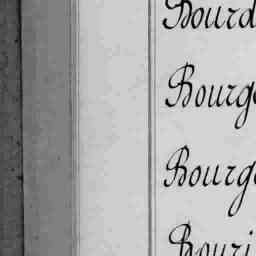 Bourd
Bourg
Bourg
Bouri